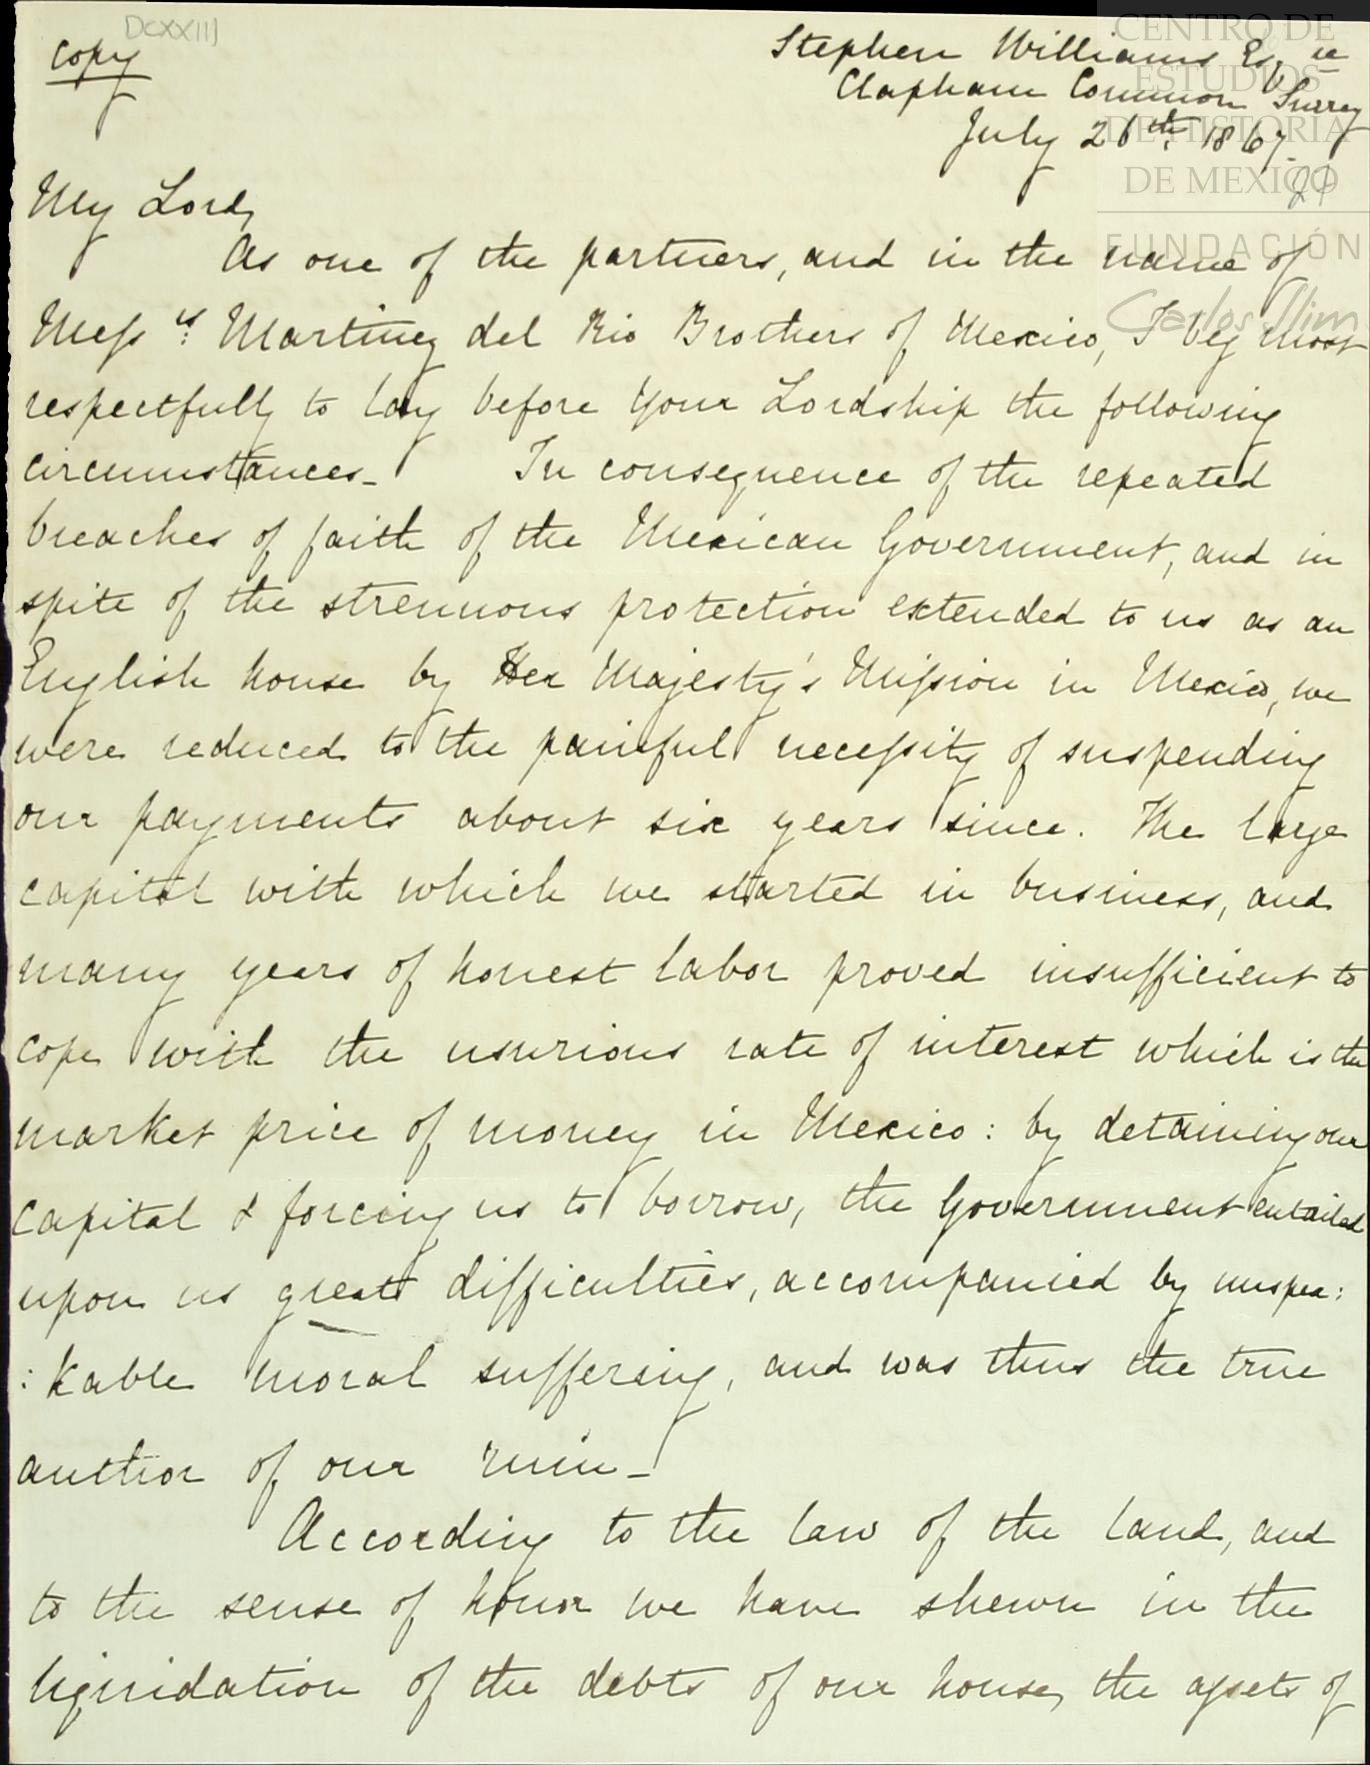 DCXXIII
Copy
CENTRO DE
ESTUDIOS
DE HISTORIA
DE MEXICO
FUNDACIÓN
Carlos Slim
Stephen Williams Esq.re
Clapham Common Surrey
July 26th 1867.
My Lord,
As one of the partners, and in the name of
Messrs Martinez del Rio Brothers of Mexico, I beg most
respectfully to lay before your Lordship the following
circumstances_ In consequence of the repeated
breaches of faith of the Mexican Government, and in
spite of the strenuous protection extended to us as an
English house by Her Majesty's Mission in Mexico, we
were reduced to the painful necessity of suspending
our payments about six years since. The large
capital with which we started in business, and
many years of honest labor proved insufficient to
cope with the usurious rate of interest which is the
market price of money in Mexico: by detaining our
capital & forcing us to borrow, the Government entailed
upon us great difficulties, accompanied by unspea:
:kable moral suffering, and was thus the true
author of our ruin_
According to the law of the land, and
to the sense of honor we have shewn in the
liquidation of the debts of our house, the assets of